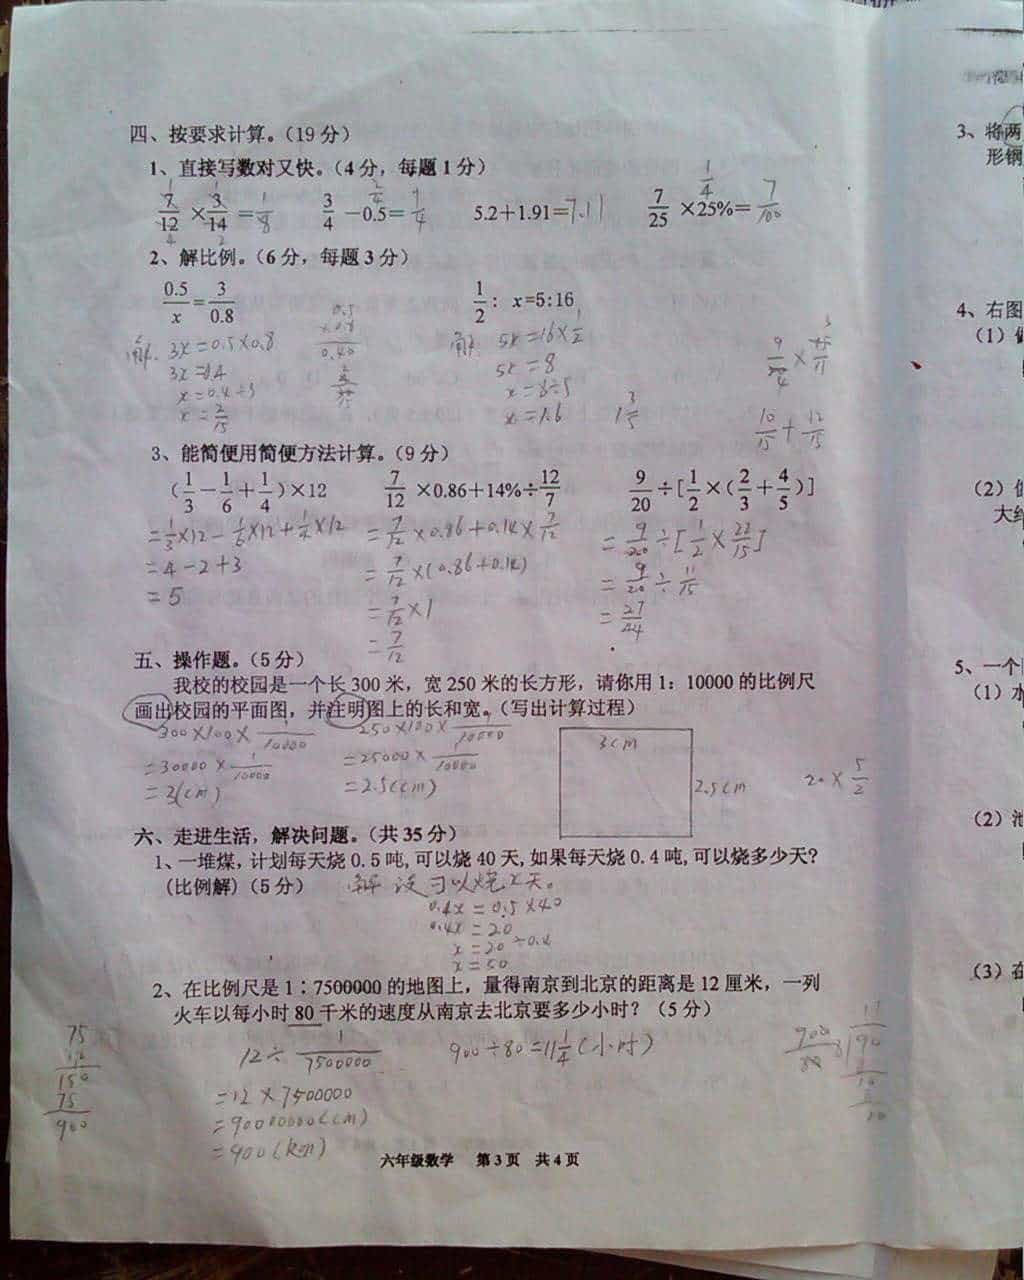 四、按要求计算。(19分)
1、直接写数对又快。(4分，每题1分)
7/12 × 3/14 = 1/8   3/4 －0.5= 1/4   5.2+1.91=7.11   7/25 ×25%= 7/100
2、解比例。(6分，每题3分)
0.5/x = 3/0.8   1/2 : x=5:16
解: 3x=0.5×0.8   解: 5x=16×1/2
3x=0.4   5x=8
x=0.4÷3   x=8÷5
x=2/15   x=1.6   1 3/5
10/15 + 12/15
3、能简便用简便方法计算。(9分)
(1/3 － 1/6 + 1/4)×12   7/12 ×0.86+14%÷ 12/7   9/20 ÷[1/2 ×(2/3 + 4/5)]
=1/3×12－1/6×12+1/4×12   =7/12×0.86+0.14×7/12   =9/20÷[1/2×22/15]
=4－2+3   =7/12×(0.86+0.14)   =9/20÷11/15
=5   =7/12×1   =27/44
=7/12
五、操作题。(5分)
我校的校园是一个长300米，宽250米的长方形，请你用1：10000的比例尺
画出校园的平面图，并注明图上的长和宽。(写出计算过程)
300×100×1/10000   250×100×1/10000   3cm
=30000×1/10000   =25000×1/10000
=3(cm)   =2.5(cm)   2.5cm   20×5/2
六、走进生活，解决问题。(共35分)
1、一堆煤，计划每天烧0.5吨,可以烧40天,如果每天烧0.4吨,可以烧多少天?
(比例解)(5分)   解 设可以烧x天。
0.4x=0.5×40
0.4x=20
x=20÷0.4
x=50
2、在比例尺是1：7500000的地图上，量得南京到北京的距离是12厘米，一列
火车以每小时80千米的速度从南京去北京要多少小时？(5分)
12÷1/7500000   900÷80=11 1/4(小时)
=12×7500000
=90000000(cm)
=900(km)
75
12
150
75
900
六年级数学   第3页   共4页
3、将两
形钢
4、右图
(1)
(2)
大约
5、一个
(1)水
(2)池
(3)在